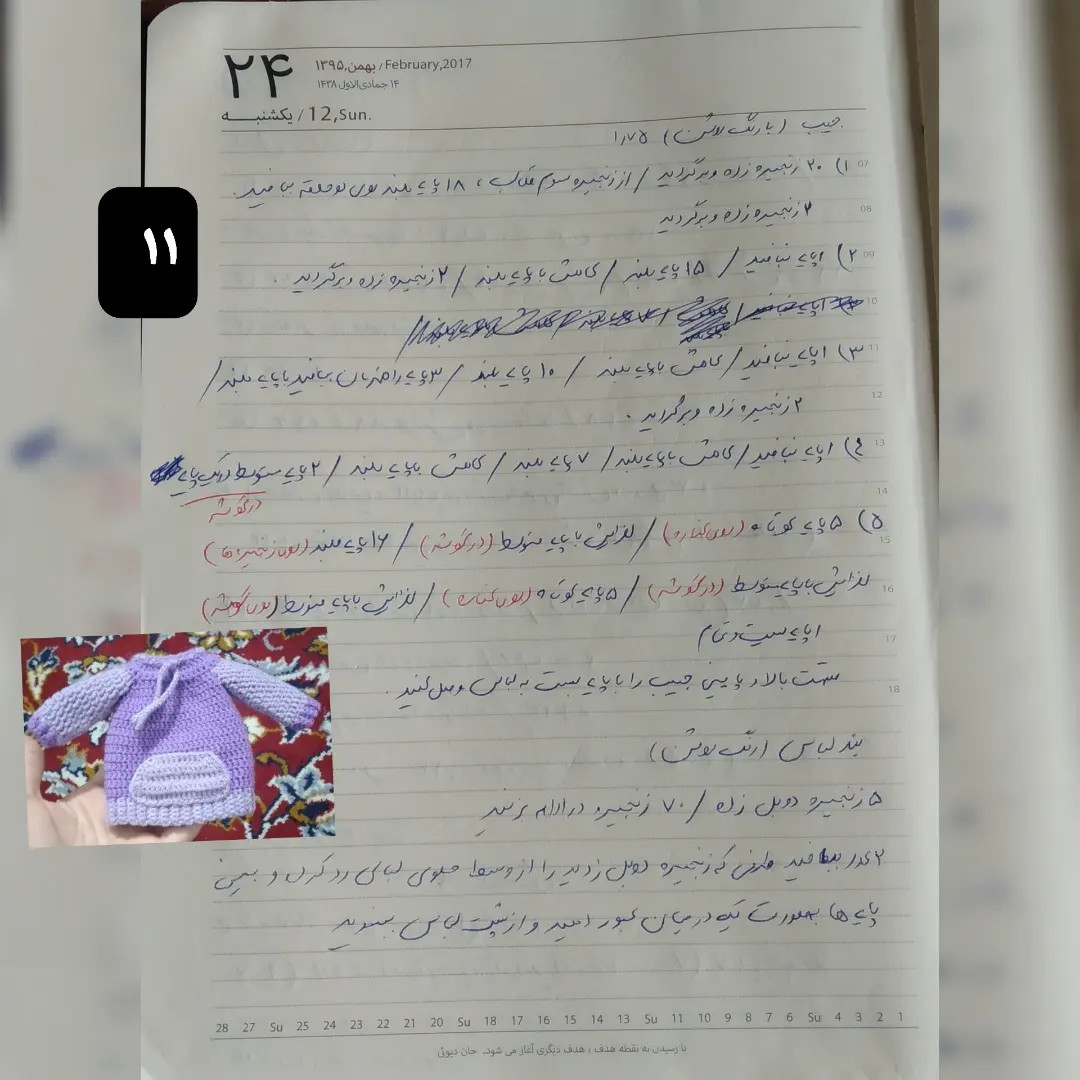 ۲۴
بهمن,۱۳۹۵ / February,2017
۱۴ جمادی‌الاول ۱۴۳۸
یکشنبه / 12,Sun.
۱۱
جیب (با رنگ روشن) ۱٫۷۵
07
۱) ۲۰ زنجیره زده و برگردید / از زنجیره سوم قلاب، ۱۸ پایه بلند توی دو حلقه ببافید.
08
۲ زنجیره زده و برگردید
09
۲) ۱پایه نبافید / ۱۵ پایه بلند / کاهش با پایه بلند / ۲ زنجیره زده و برگردید.
10
11
۳) ۱ پایه نبافید / کاهش با پایه بلند / ۱۰ پایه بلند / ۳ پایه را همزمان ببافید با پایه بلند /
12
۲ زنجیره زده و برگردید.
13
۴) ۱ پایه نبافید / کاهش با پایه بلند / ۷ پایه بلند / کاهش با پایه بلند / ۲ پایه متوسط در یک پایه
14
در گوشه
15
۵) ۵ پایه کوتاه (روی کناره) / افزایش با پایه متوسط (در گوشه) / ۱۶ پایه بلند (روی زنجیره ها)
16
افزایش با پایه متوسط (در گوشه) / ۵ پایه کوتاه (روی کناره) / افزایش با پایه متوسط (روی گوشه)
17
۱ پایه بست و تمام
18
قسمت بالا و پایینی جیب را با پایه بست به لباس وصل کنید.
بند لباس (رنگ روشن)
۵ زنجیره دوبل زده / ۷۰ زنجیره در ادامه بزنید
۲ عدد ببافید طرفی که زنجیره دوبل زدید را از وسط جلوی لباس رد کرده و بین
پایه ها بصورت یکی در میان عبور دهید و از پشت لباس ببندید
28 27 Su 25 24 23 22 21 20 Su 18 17 16 15 14 13 Su 11 10 9 8 7 6 Su 4 3 2 1
نا رسیدن به نقطه هدف ، هدف دیگری آغاز می شود. جان دیوئی